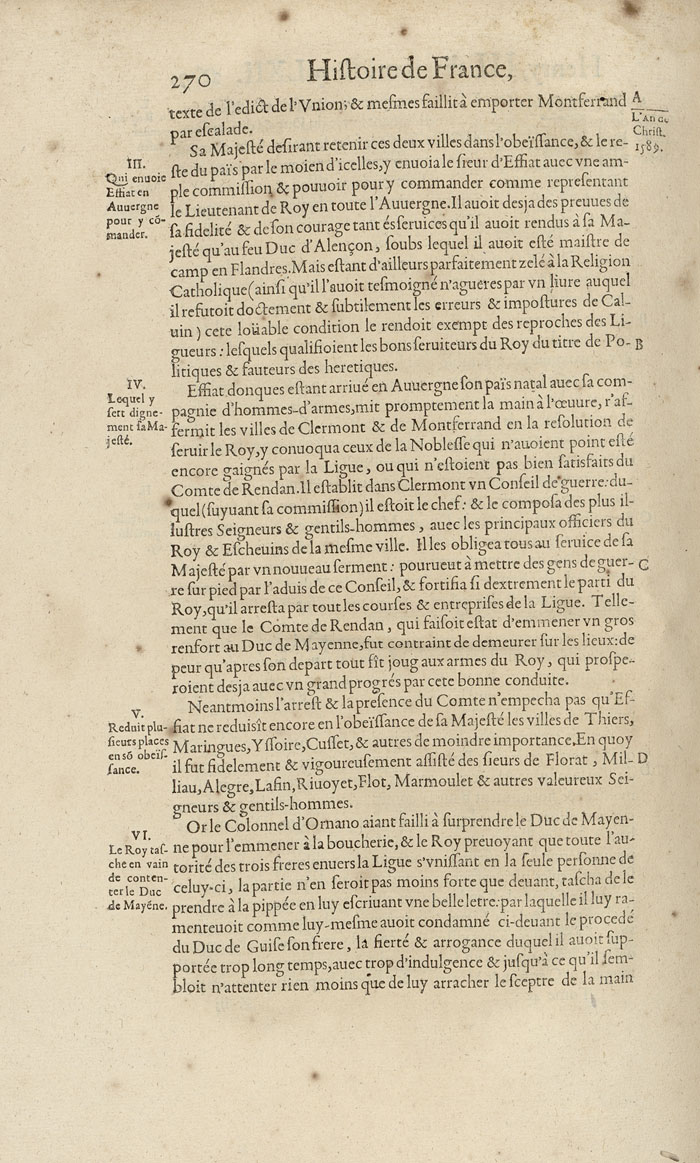 270 Hiſtoire de France,
texte de l'edict de l'Vnion; & meſmes faillit à emporter Montferrand
par eſcalade.
A
L'An de
Chriſt.
1589.
III.
Qui enuoie
Effiat en
Auuergne
pour y cō-
mander.
Sa Majeſté deſirant retenir ces deux villes dans l'obeïſſance, & le re-
ſte du païs par le moien d'icelles, y enuoia le ſieur d'Effiat auec vne am-
ple commiſſion & pouuoir pour y commander comme repreſentant
le Lieutenant de Roy en toute l'Auuergne. Il auoit desja des preuues de
ſa fidelité & de ſon courage tant és ſeruices qu'il auoit rendus à ſa Ma-
jeſté qu'au feu Duc d'Alençon, ſoubs lequel il auoit eſté maiſtre de
camp en Flandres. Mais eſtant d'ailleurs parfaitement zelé à la Religion
Catholique (ainſi qu'il l'auoit teſmoigné n'agueres par vn liure auquel
il refutoit doctement & ſubtilement les erreurs & impoſtures de Cal-
uin) cete loüable condition le rendoit exempt des reproches des Li-
gueurs: leſquels qualifioient les bons ſeruiteurs du Roy du titre de Po- B
litiques & fauteurs des heretiques.
IV.
Lequel y
ſert digne-
ment ſa Ma-
jeſté.
Effiat donques eſtant arriué en Auuergne ſon païs natal auec ſa com-
pagnie d'hommes-d'armes, mit promptement la main à l'œuure, r'af-
fermit les villes de Clermont & de Montferrand en la reſolution de
ſeruir le Roy, y conuoqua ceux de la Nobleſſe qui n'auoient point eſté
encore gaignés par la Ligue, ou qui n'eſtoient pas bien ſatisfaits du
Comte de Rendan. Il eſtablit dans Clermont vn Conſeil de guerre: du-
quel (ſuyuant ſa commiſſion) il eſtoit le chef: & le compoſa des plus il-
luſtres Seigneurs & gentils-hommes, auec les principaux officiers du
Roy & Eſcheuins de la meſme ville. Il les obligea tous au ſeruice de ſa
Majeſté par vn nouueau ſerment: pourueut à mettre des gens de guer- C
re ſur pied par l'aduis de ce Conſeil, & fortifia ſi dextrement le parti du
Roy, qu'il arreſta par tout les courſes & entrepriſes de la Ligue. Telle-
ment que le Comte de Rendan, qui faiſoit eſtat d'emmener vn gros
renfort au Duc de Mayenne, fut contraint de demeurer ſur les lieux: de
peur qu'apres ſon depart tout fît joug aux armes du Roy, qui proſpe-
roient desja auec vn grand progrés par cete bonne conduite.
V.
Reduit plu-
ſieurs places
en sō obeïſ-
ſance.
Neantmoins l'arreſt & la preſence du Comte n'empecha pas qu'Ef-
fiat ne reduisît encore en l'obeïſſance de ſa Majeſté les villes de Thiers,
Maringues, Yſſoire, Cuſſet, & autres de moindre importance. En quoy
il fut fidelement & vigoureuſement aſſiſté des ſieurs de Florat, Mil- D
liau, Alegre, Lafin, Riuoyet, Flot, Marmoulet & autres valeureux Sei-
gneurs & gentils-hommes.
VI.
Le Roy taſ-
che en vain
de conten-
ter le Duc
de Mayéne.
Or le Colonnel d'Ornano aiant failli à ſurprendre le Duc de Mayen-
ne pour l'emmener à la boucherie, & le Roy preuoyant que toute l'au-
torité des trois freres enuers la Ligue s'vniſſant en la ſeule perſonne de
celuy-ci, la partie n'en ſeroit pas moins forte que deuant, taſcha de le
prendre à la pippée en luy eſcriuant vne belle letre: par laquelle il luy ra-
menteuoit comme luy-meſme auoit condamné ci-deuant le procedé
du Duc de Guiſe ſon frere, la fierté & arrogance duquel il auoit ſup-
portée trop long temps, auec trop d'indulgence & juſqu'à ce qu'il ſem-
bloit n'attenter rien moins que de luy arracher le ſceptre de la main